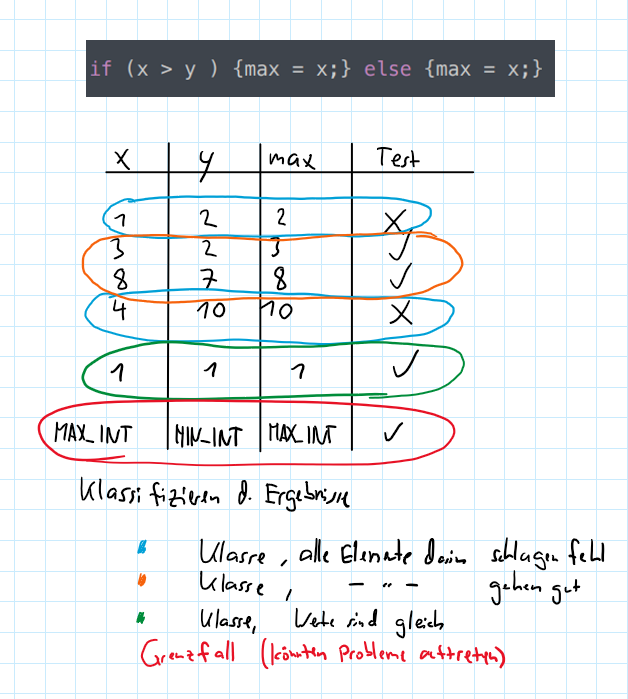 if (x > y ) {max = x;} else {max = x;}
x y max Test
1 2 2 X
3 2 3 ✓
8 7 8 ✓
4 10 10 X
1 1 1 ✓
MAX_INT MIN_INT MAX_INT ✓
Klassifizieren d. Ergebnisse
Klasse, alle Elemente darin schlagen fehl
Klasse, — " — gehen gut
Klasse, Werte sind gleich
Grenzfall (könnten Probleme auftreten)